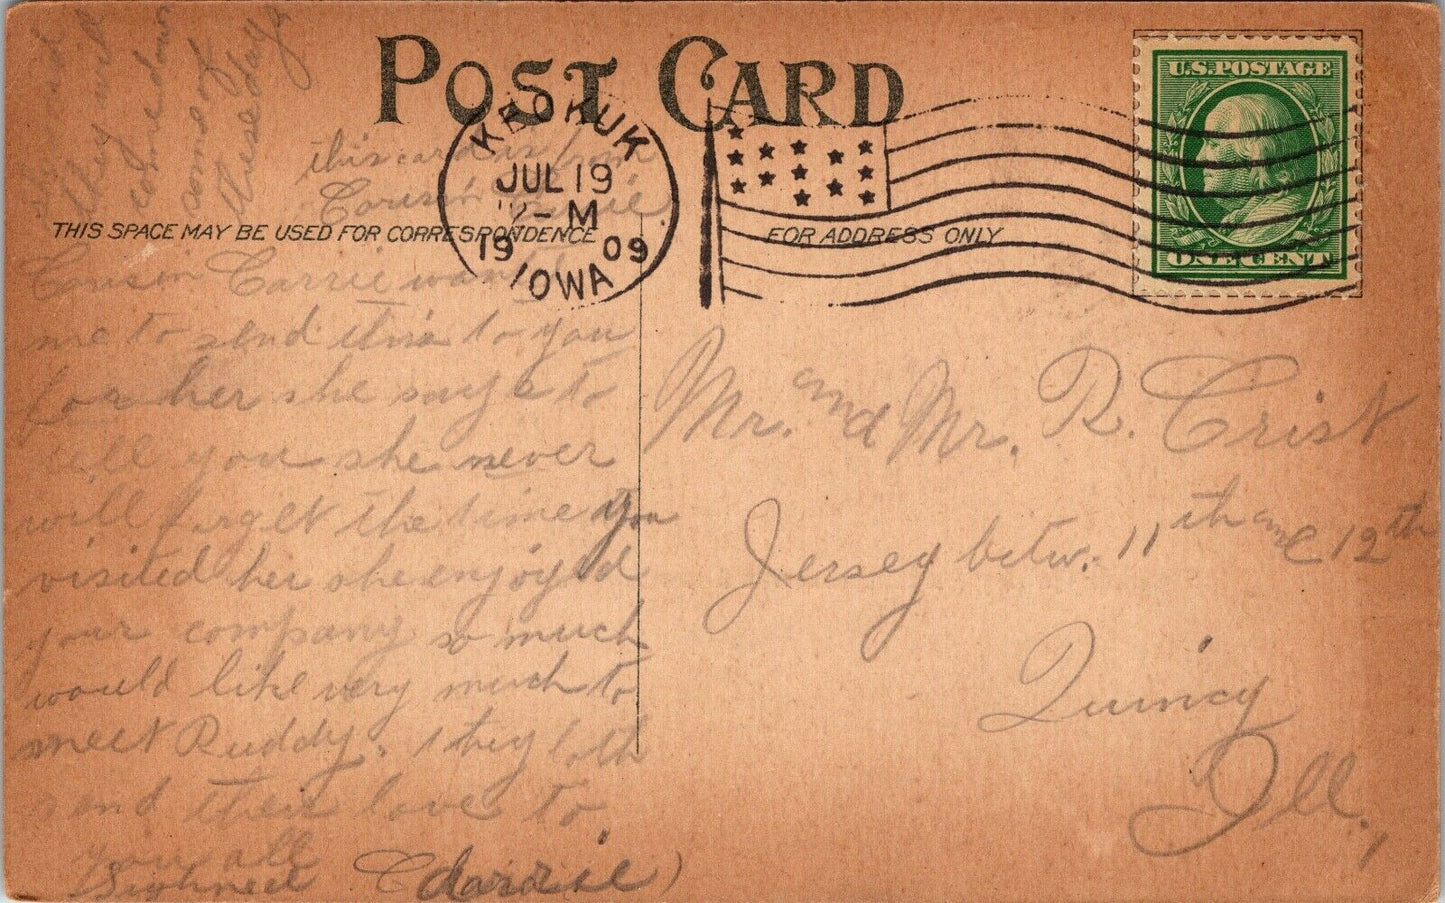 POST CARD
U.S. POSTAGE
ONE CENT
KEOKUK
JUL 19
-M
1909
IOWA
this card is from
Cousin Carrie
THIS SPACE MAY BE USED FOR CORRESPONDENCE
FOR ADDRESS ONLY
Cousin Carrie wants
me to send this to you
for her she says to
tell you she never
will forget the time you
visited her she enjoyed
your company so much
would like very much to
meet Ruddy. they both
send their love to
you all
(Carrie)
they will
come down
some of
these days
Mr. and Mr. R. Crist
Jersey betw. 11th and 12th
Quincy
Ill.,